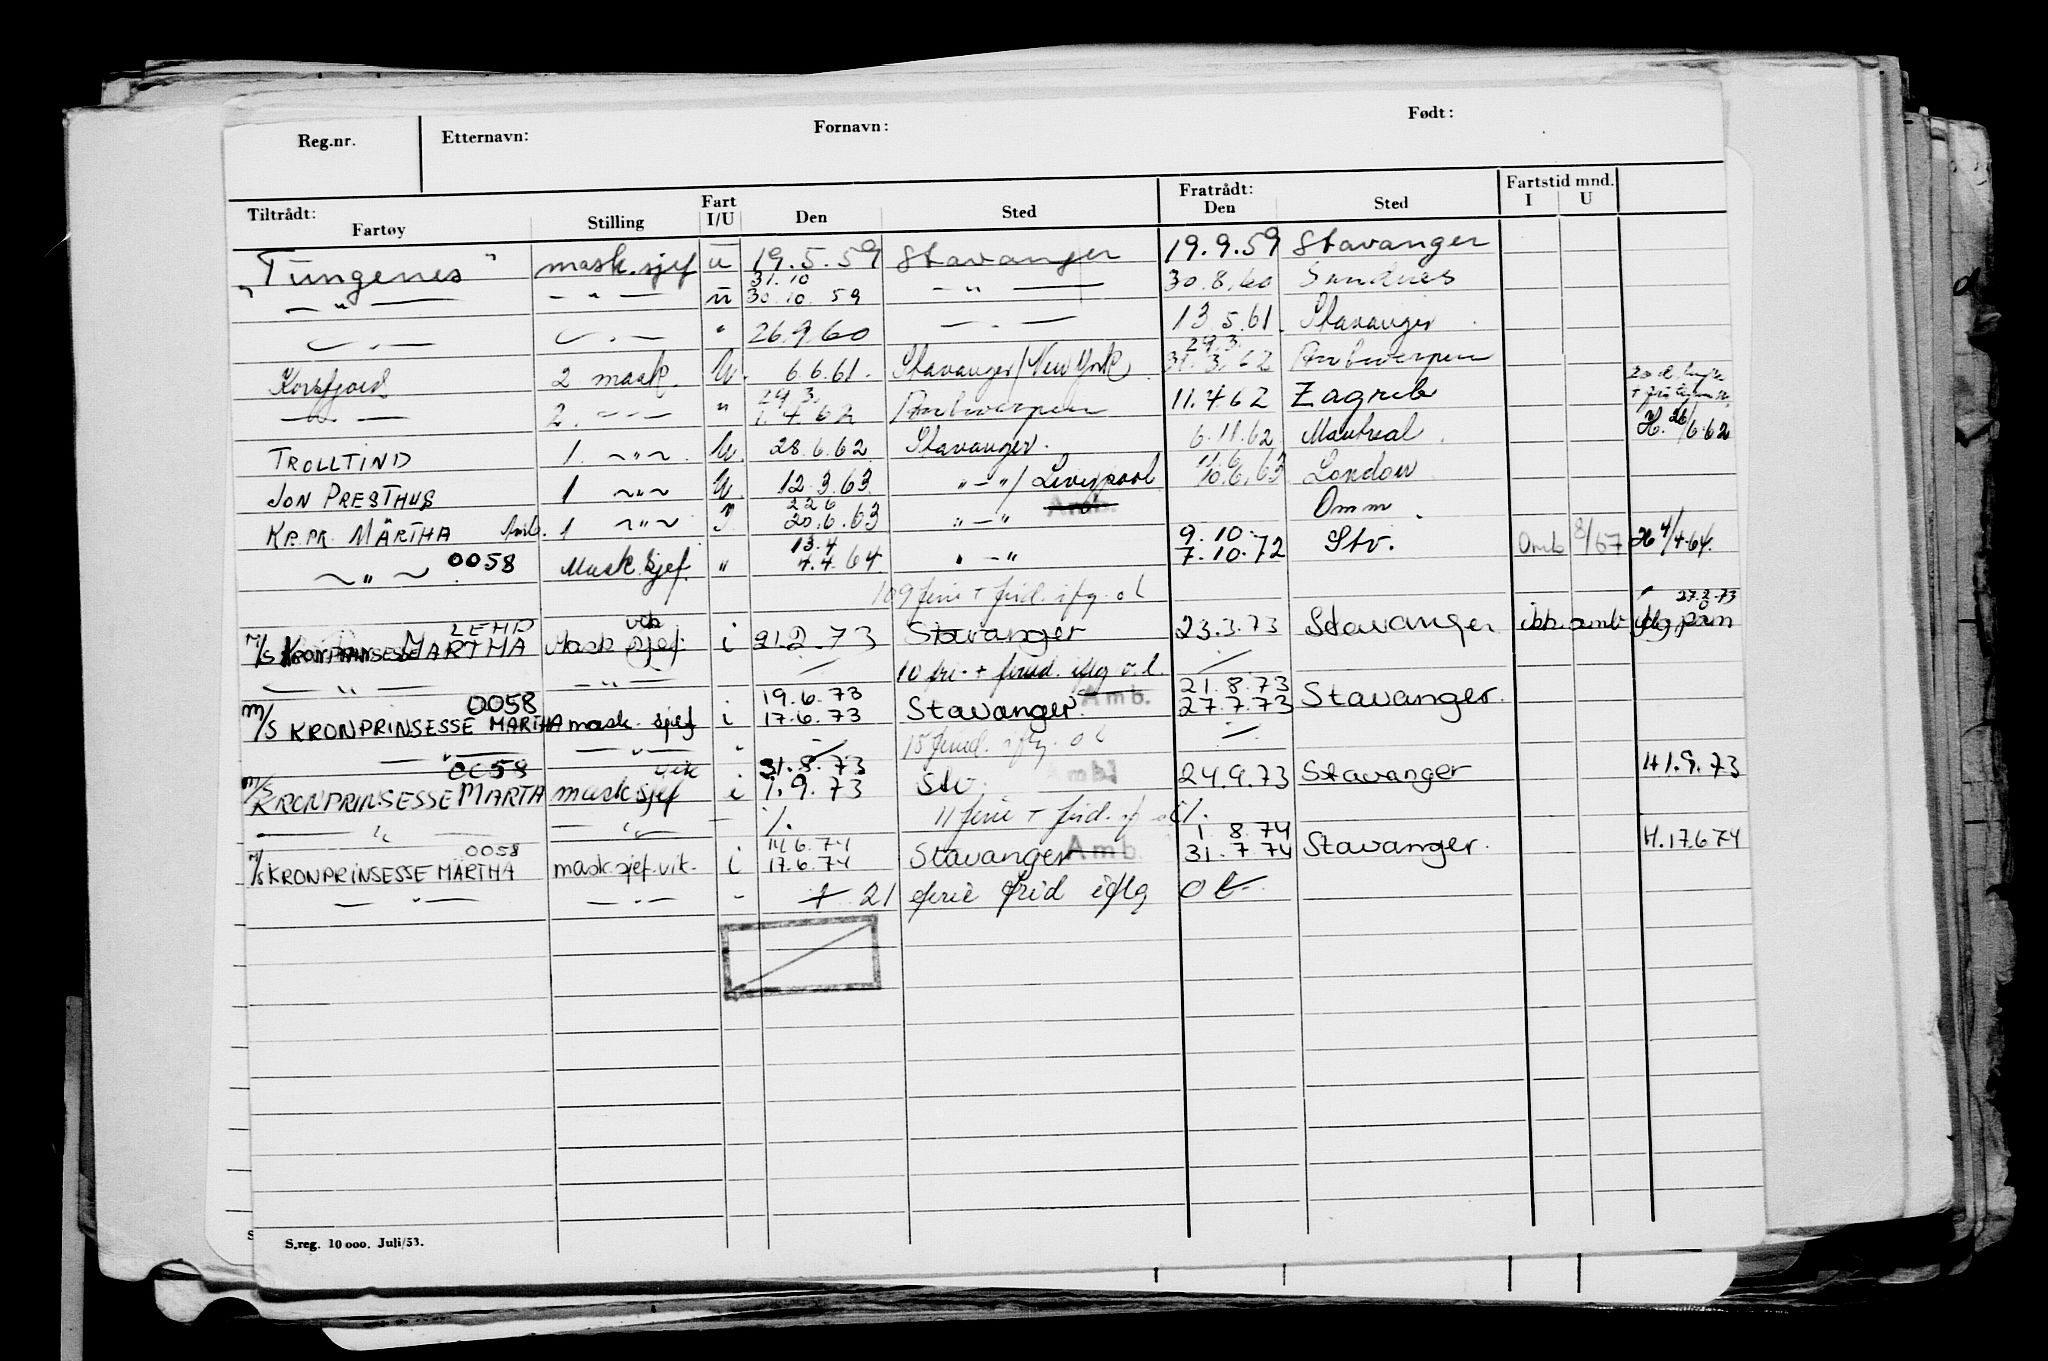 Reg.nr. Etternavn: Fornavn: Født:
Tiltrådt: Fratrådt: Fartstid mnd.
Fartøy Stilling Fart I/U Den Sted Den Sted I U
"Tungenes" mask.sjef u 19.5.59 Stavanger 19.9.59 Stavanger
31.10
— " — — " — u 30.10.59 — " — 30.8.60 Sandnes
— " — — " — " 26.9.60 — " — 13.5.61 Stavanger
29.3.
Korsfjord 2 mask. U. 6.6.61. Stavanger/New York 31.3.62 Antwerpen
29.3.
— " — 2. — " — " 1.4.62 Antwerpen 11.4.62 Zagreb
TROLLTIND 1. — " — U. 28.6.62 Stavanger. 6.11.62 Montreal. H. 26/6.62
JON PRESTHUS 1 — " — U. 12.3.63 " — " / Liverpool 10.6.63 London
22 6
KR.PR. MÄRTHA Amb. 1 — " — I. 20.6.63 " — " Amb. Omm
13.4 9.10.
— " — 0058 Mask.sjef. " 4.4.64 " — " 7.10.72 Stv. Omb 8/67 H 4/4-64.
109 ferie + frid. ifg. o l
27.2.73
vik
M/S KRONPRINSESSE MÄRTHA Mask sjef. i 21.2.73 Stavanger 23.3.73 Stavanger ikke amb
— " — — " — 10 fri. + frid. iflg o.l.
0058 19.6.73 Amb. 21.8.73
M/S KRONPRINSESSE MÄRTHA mask. sjef i 17.6.73 Stavanger. 27.7.73 Stavanger.
— " — — " — " 15 frid. iflg. o l
0058 vik 31.8.73
M/S KRONPRINSESSE MARTA mask sjef i 1.9.73 Stv. Amb. 24.9.73 Stavanger H1.9.73
— " — — " — — 11 ferie + frid.
0058 14.6.74 1.8.74
M/S KRONPRINSESSE MÄRTHA mask.sjef.vik. i 17.6.74 Stavanger Amb. 31.7.74 Stavanger. H.17.6.74
— " — — " — - + 21 ferie frid iflg o l
S.reg. 10 000. Juli/53.